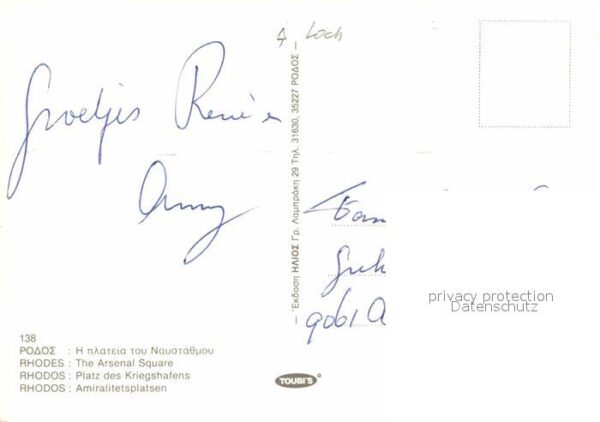 Loch
Groetjes René
Anny
Fam
9061 A
Έκδοση ΗΛΙΟΣ Γρ. Λαμπράκη 29 Τηλ. 31630, 35227 ΡΟΔΟΣ
138
ΡΟΔΟΣ : Η πλατεια του Ναυστάθμου
RHODES : The Arsenal Square
RHODOS : Platz des Kriegshafens
RHODOS : Amiralitetsplatsen
TOUBI'S
privacy protection
Datenschutz